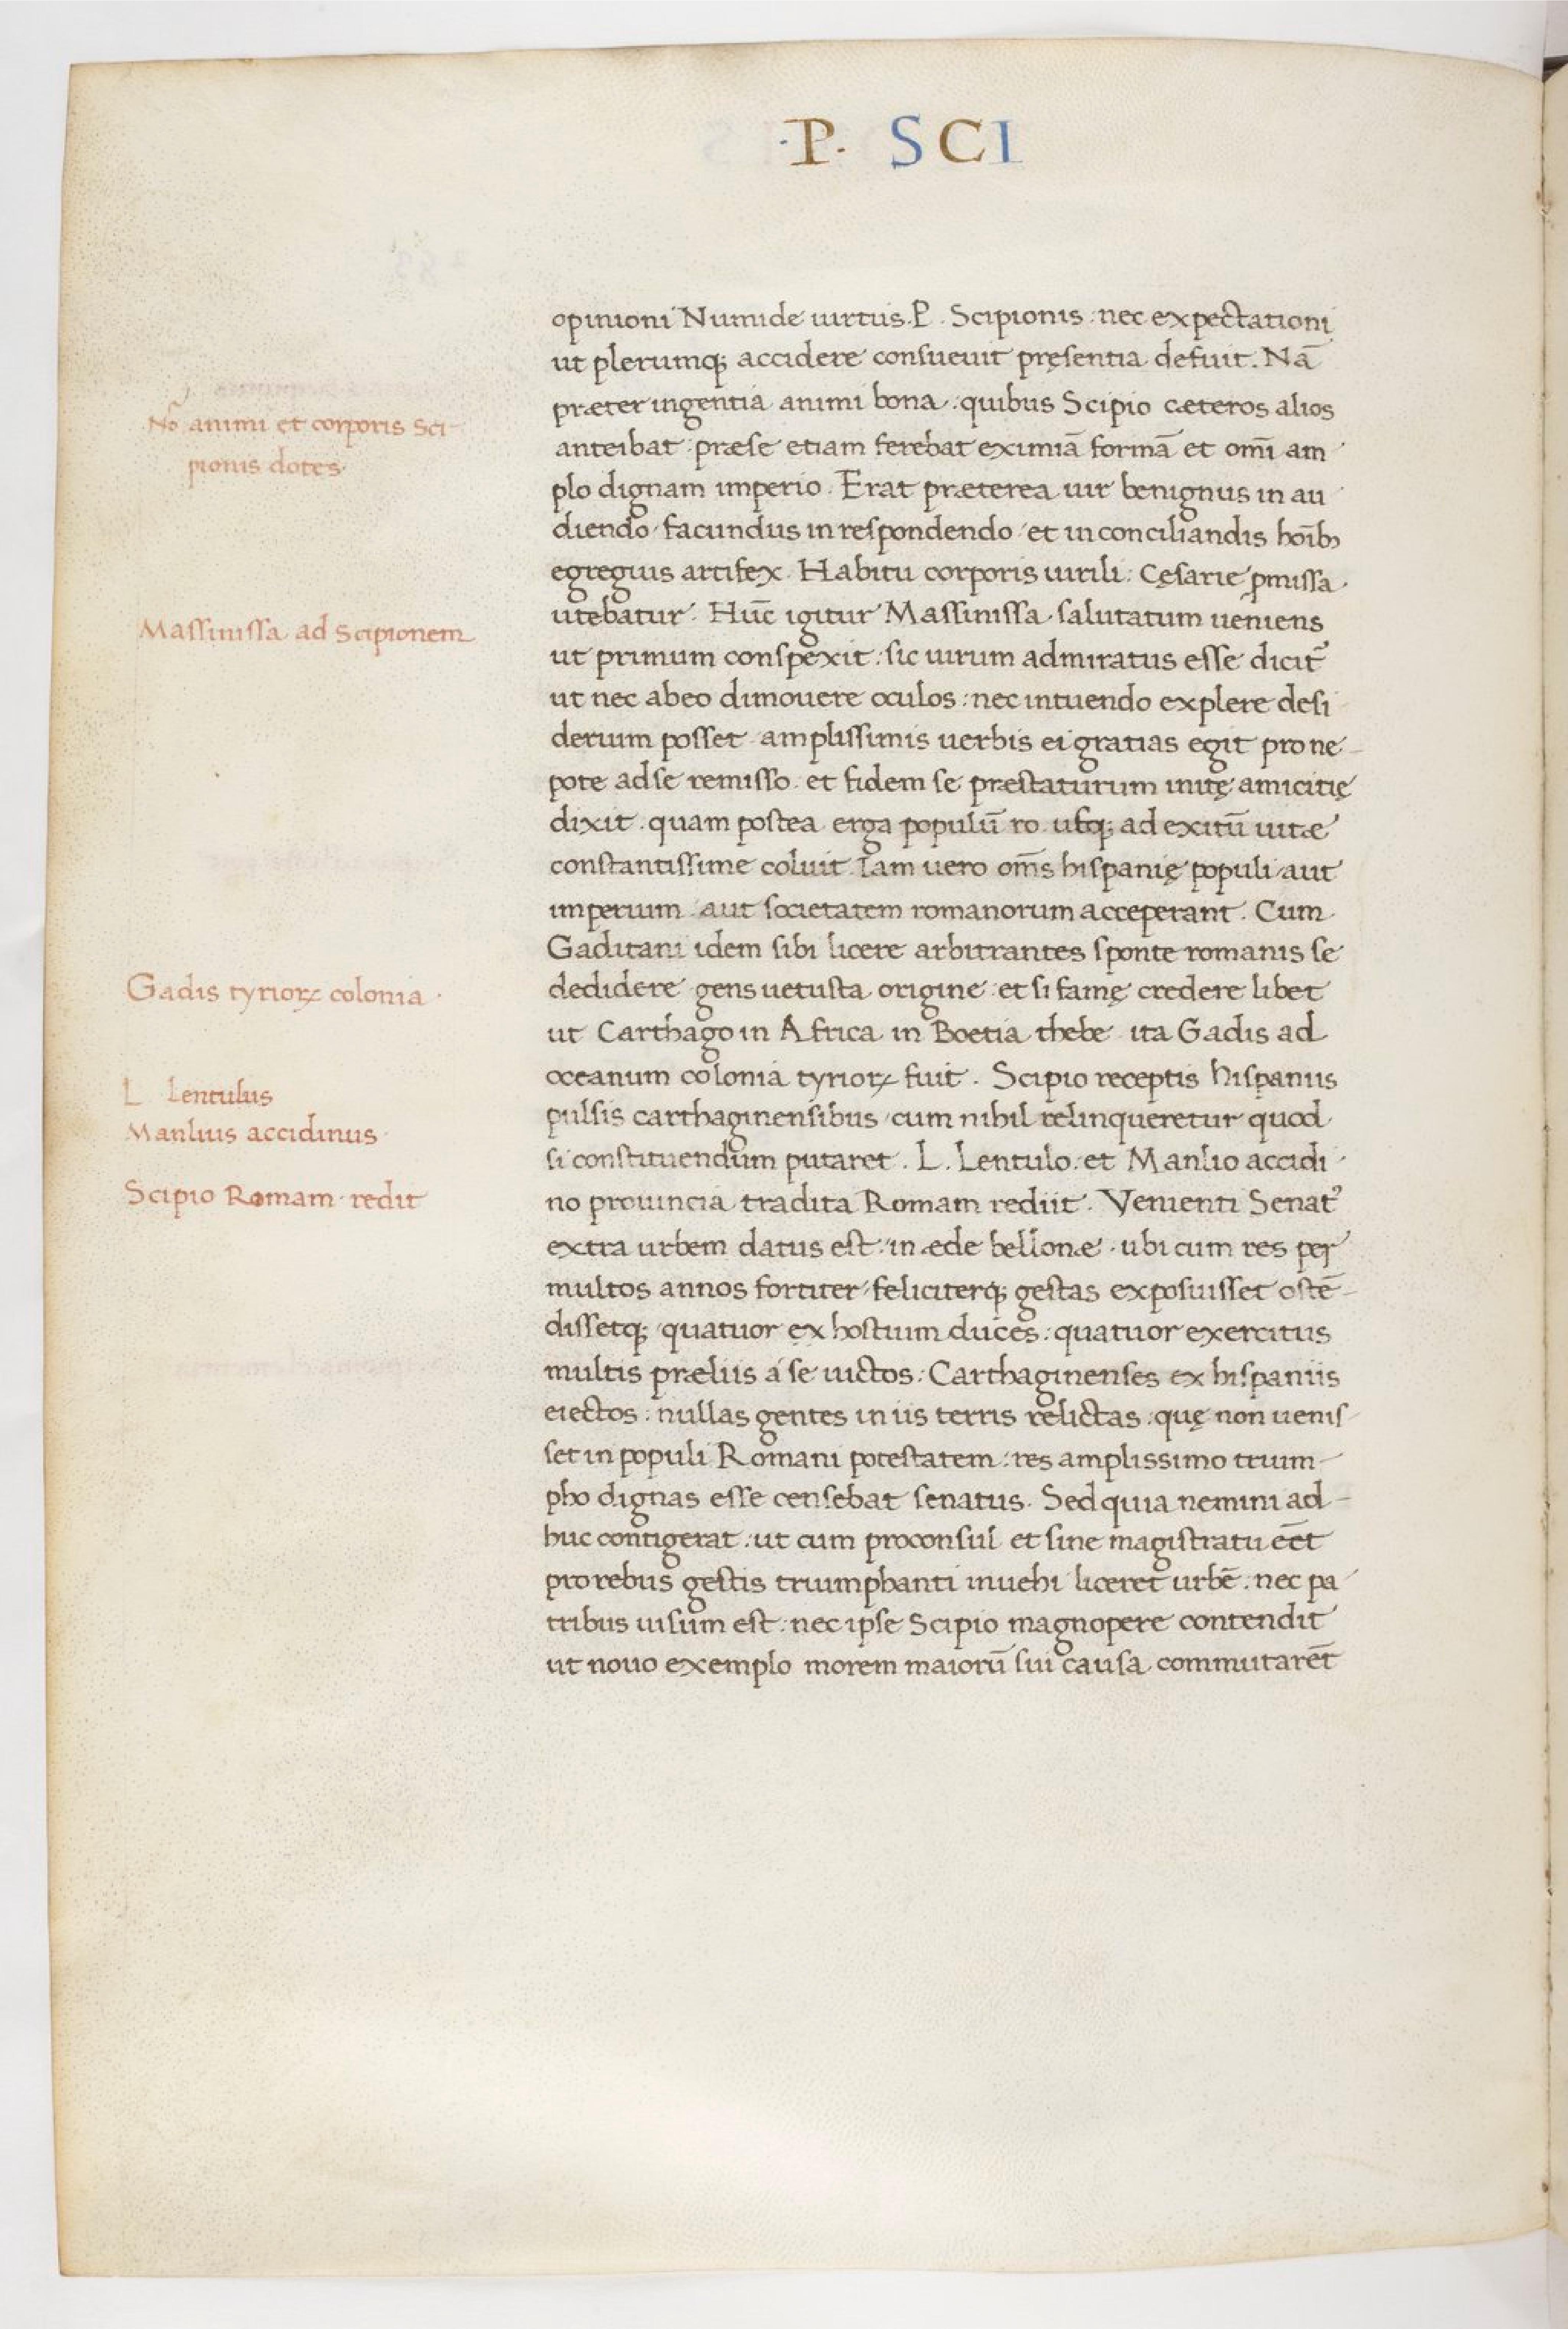 ·P· SCI
opinioni Numide uirtus. P. Scipionis: nec expectationi
ut plerumq; accidere consueuit pręsentia defuit. Nā
præter ingentia animi bona: quibus Scipio cæteros alios
No animi et corporis Sci-
pionis dotes
anteibat: præse etiam ferebat eximiā formā et omī am
plo dignam imperio. Erat præterea uir benignus in au
diendo facundus in respondendo et in conciliandis hoīb;
egregius artifex. Habitu corporis uirili: Cęsarie ꝓmissa
utebatur. Hūc igitur Massinissa salutatum ueniens
Massinissa ad Scipionem
ut primum conspexit: sic uirum admiratus esse dicit᷒
ut nec abeo dimouere oculos: nec intuendo explere desi
derium posset amplissimis uerbis ei gratias egit pro ne-
pote ad se remisso. et fidem se præstaturum initę amicitię
dixit. quam postea erga populū ro. usq; ad exitū uitæ
constantissime coluit. Iam uero om̄s hispanię populi aut
imperium aut societatem romanorum acceperant. Cum
Gaditani idem sibi licere arbitrantes sponte romanis se
dedidere gens uetusta origine: et si famę credere libet
Gadis tyrioꝝ colonia
ut Carthago in Africa in Boetia thebe ita Gadis ad
oceanum colonia tyrioꝝ fuit. Scipio receptis hispaniis
pulsis carthaginensibus cum nihil relinqueretur quod
L Lentulus
Manlius accidinus
si constituendum putaret. L. Lentulo. et Manlio accidi
no prouincia tradita Romam rediit. Venienti Senat᷒
Scipio Romam redit
extra urbem datus est: in æde bellonæ. ubi cum res per
multos annos fortiter feliciterq; gestas exposuisset ostē-
dissetq; quatuor ex hostium duces: quatuor exercitus
multis præliis á se uictos: Carthaginenses ex hispaniis
eiectos: nullas gentes in iis terris relictas: quę non uenis
set in populi Romani potestatem: res amplissimo trium-
pho dignas esse censebat senatus. Sed quia nemini ad-
huc contigerat: ut cum proconsul et sine magistratu eēt
pro rebus gestis triumphanti inuehi liceret urbē: nec pa
tribus uisum est: nec ipse Scipio magnopere contendit
ut nouo exemplo morem maiorū sui causa commutarēt